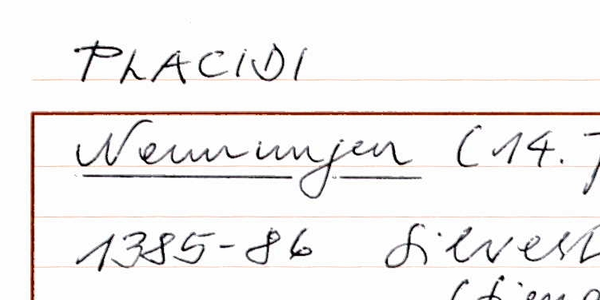 PLACIDI
Nennungen (14. J
1385-86 Silvest
(Siena